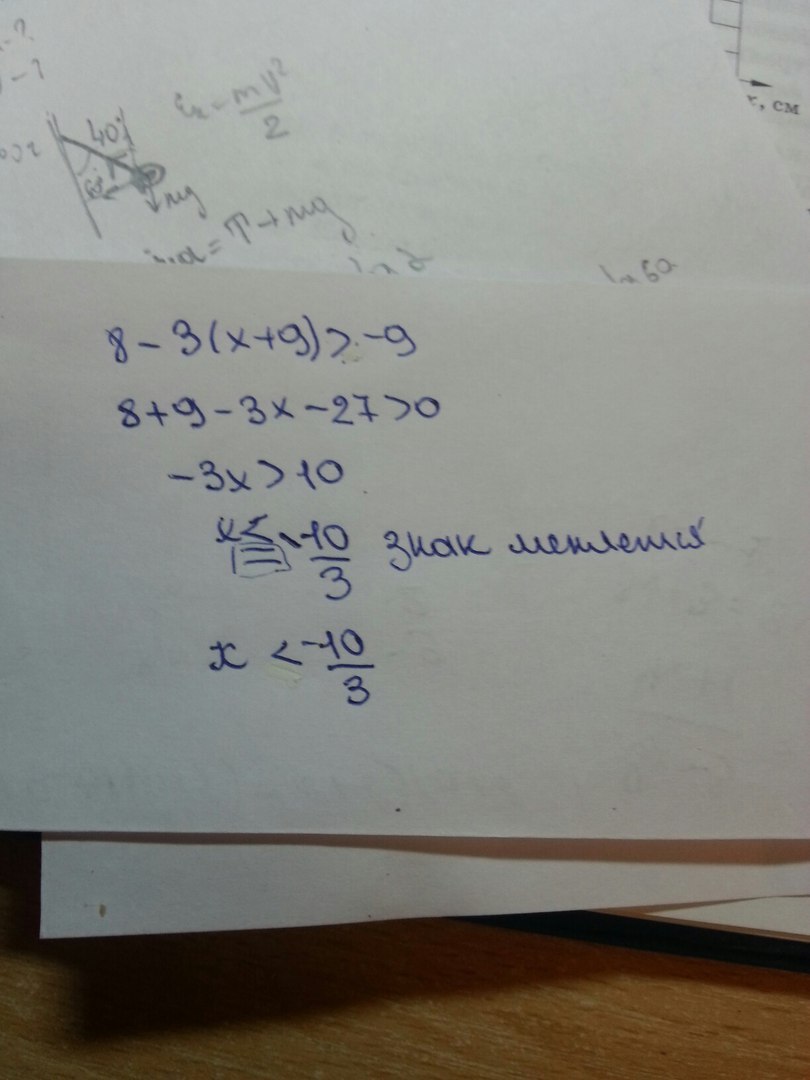 40°
mg
mv²
2
r, см
8 - 3(x+9) > -9
8+9 - 3x - 27 > 0
-3x > 10
x < -10/3 знак меняется
x < -10/3